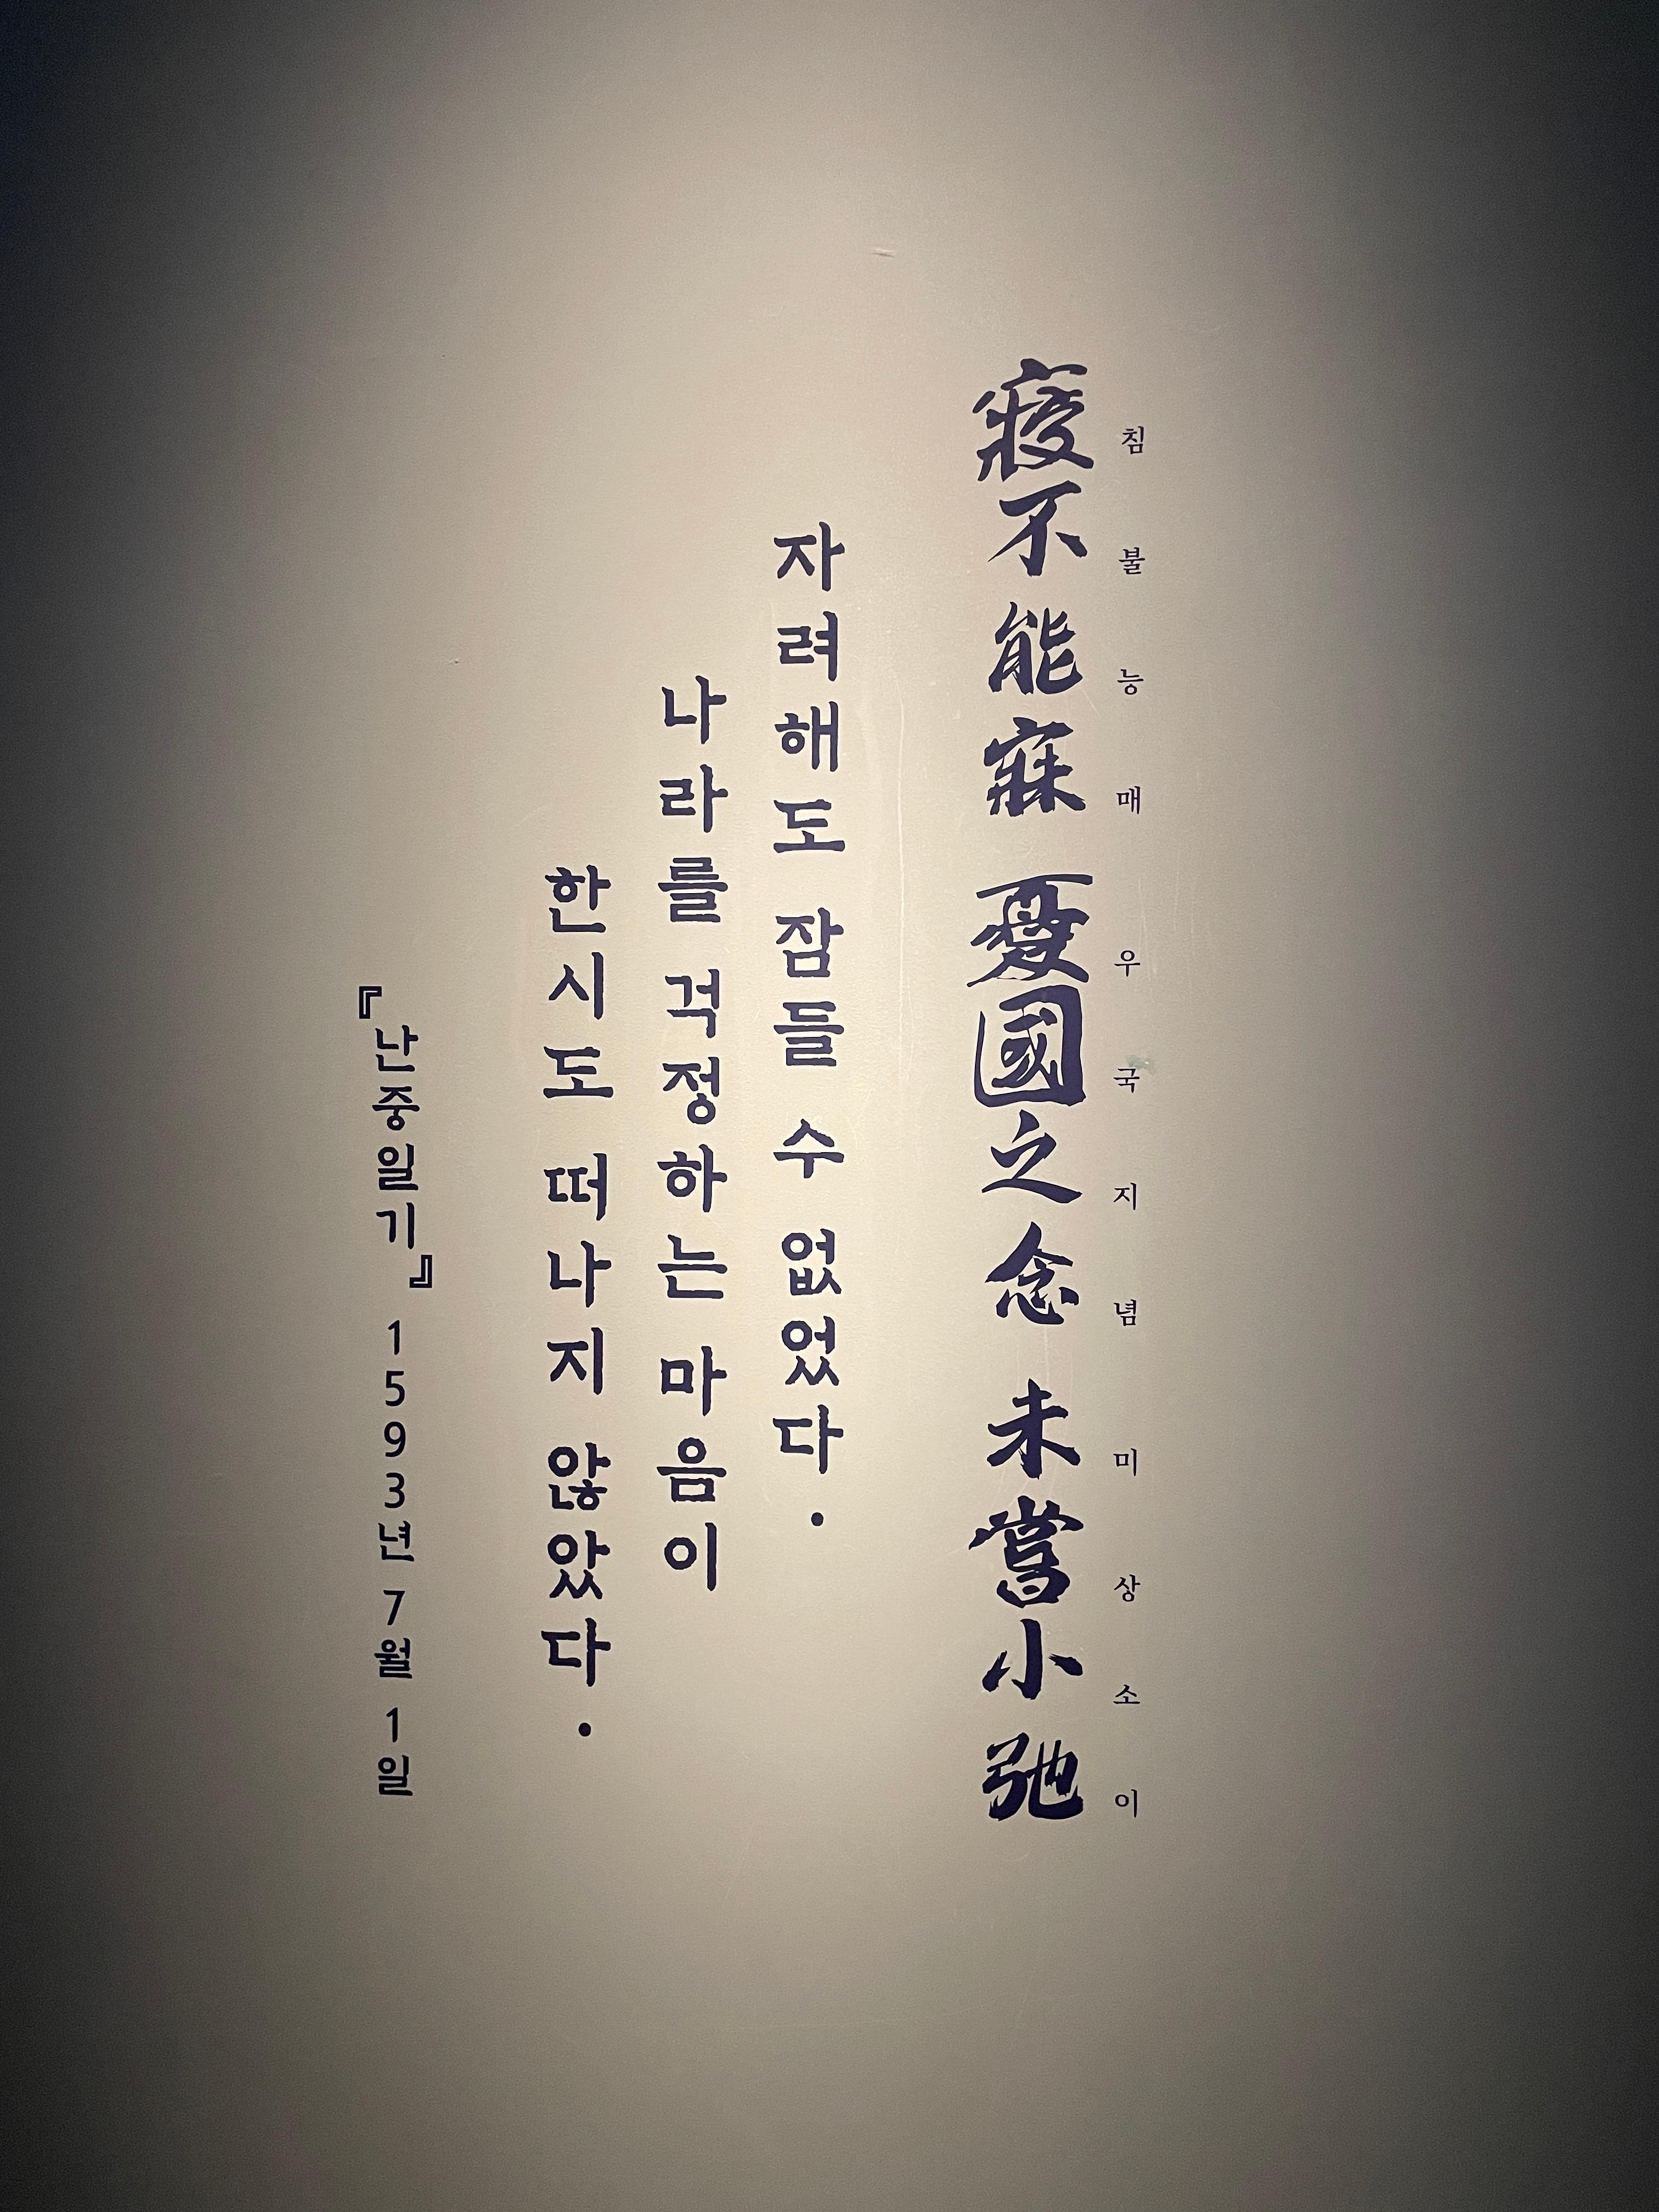 寢不能寐 憂國之念 未嘗小弛
침불능매 우국지념 미상소이
자려해도 잠들 수 없었다.
나라를 걱정하는 마음이
한시도 떠나지 않았다.
『난중일기』 1593년 7월 1일